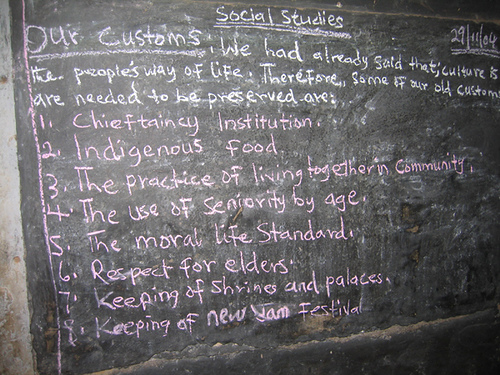 Social Studies
Our Customs: We had already said that, culture is 29/11/04
the people's way of life. Therefore, some of our old customs
are needed to be preserved are:
1. Chieftaincy Institution.
2. Indigenous Food.
3. The practice of living together in community.
4. The use of Seniority by age.
5. The moral life Standard.
6. Respect for elders.
7. Keeping of Shrines and palaces.
8. Keeping of new Yam Festival